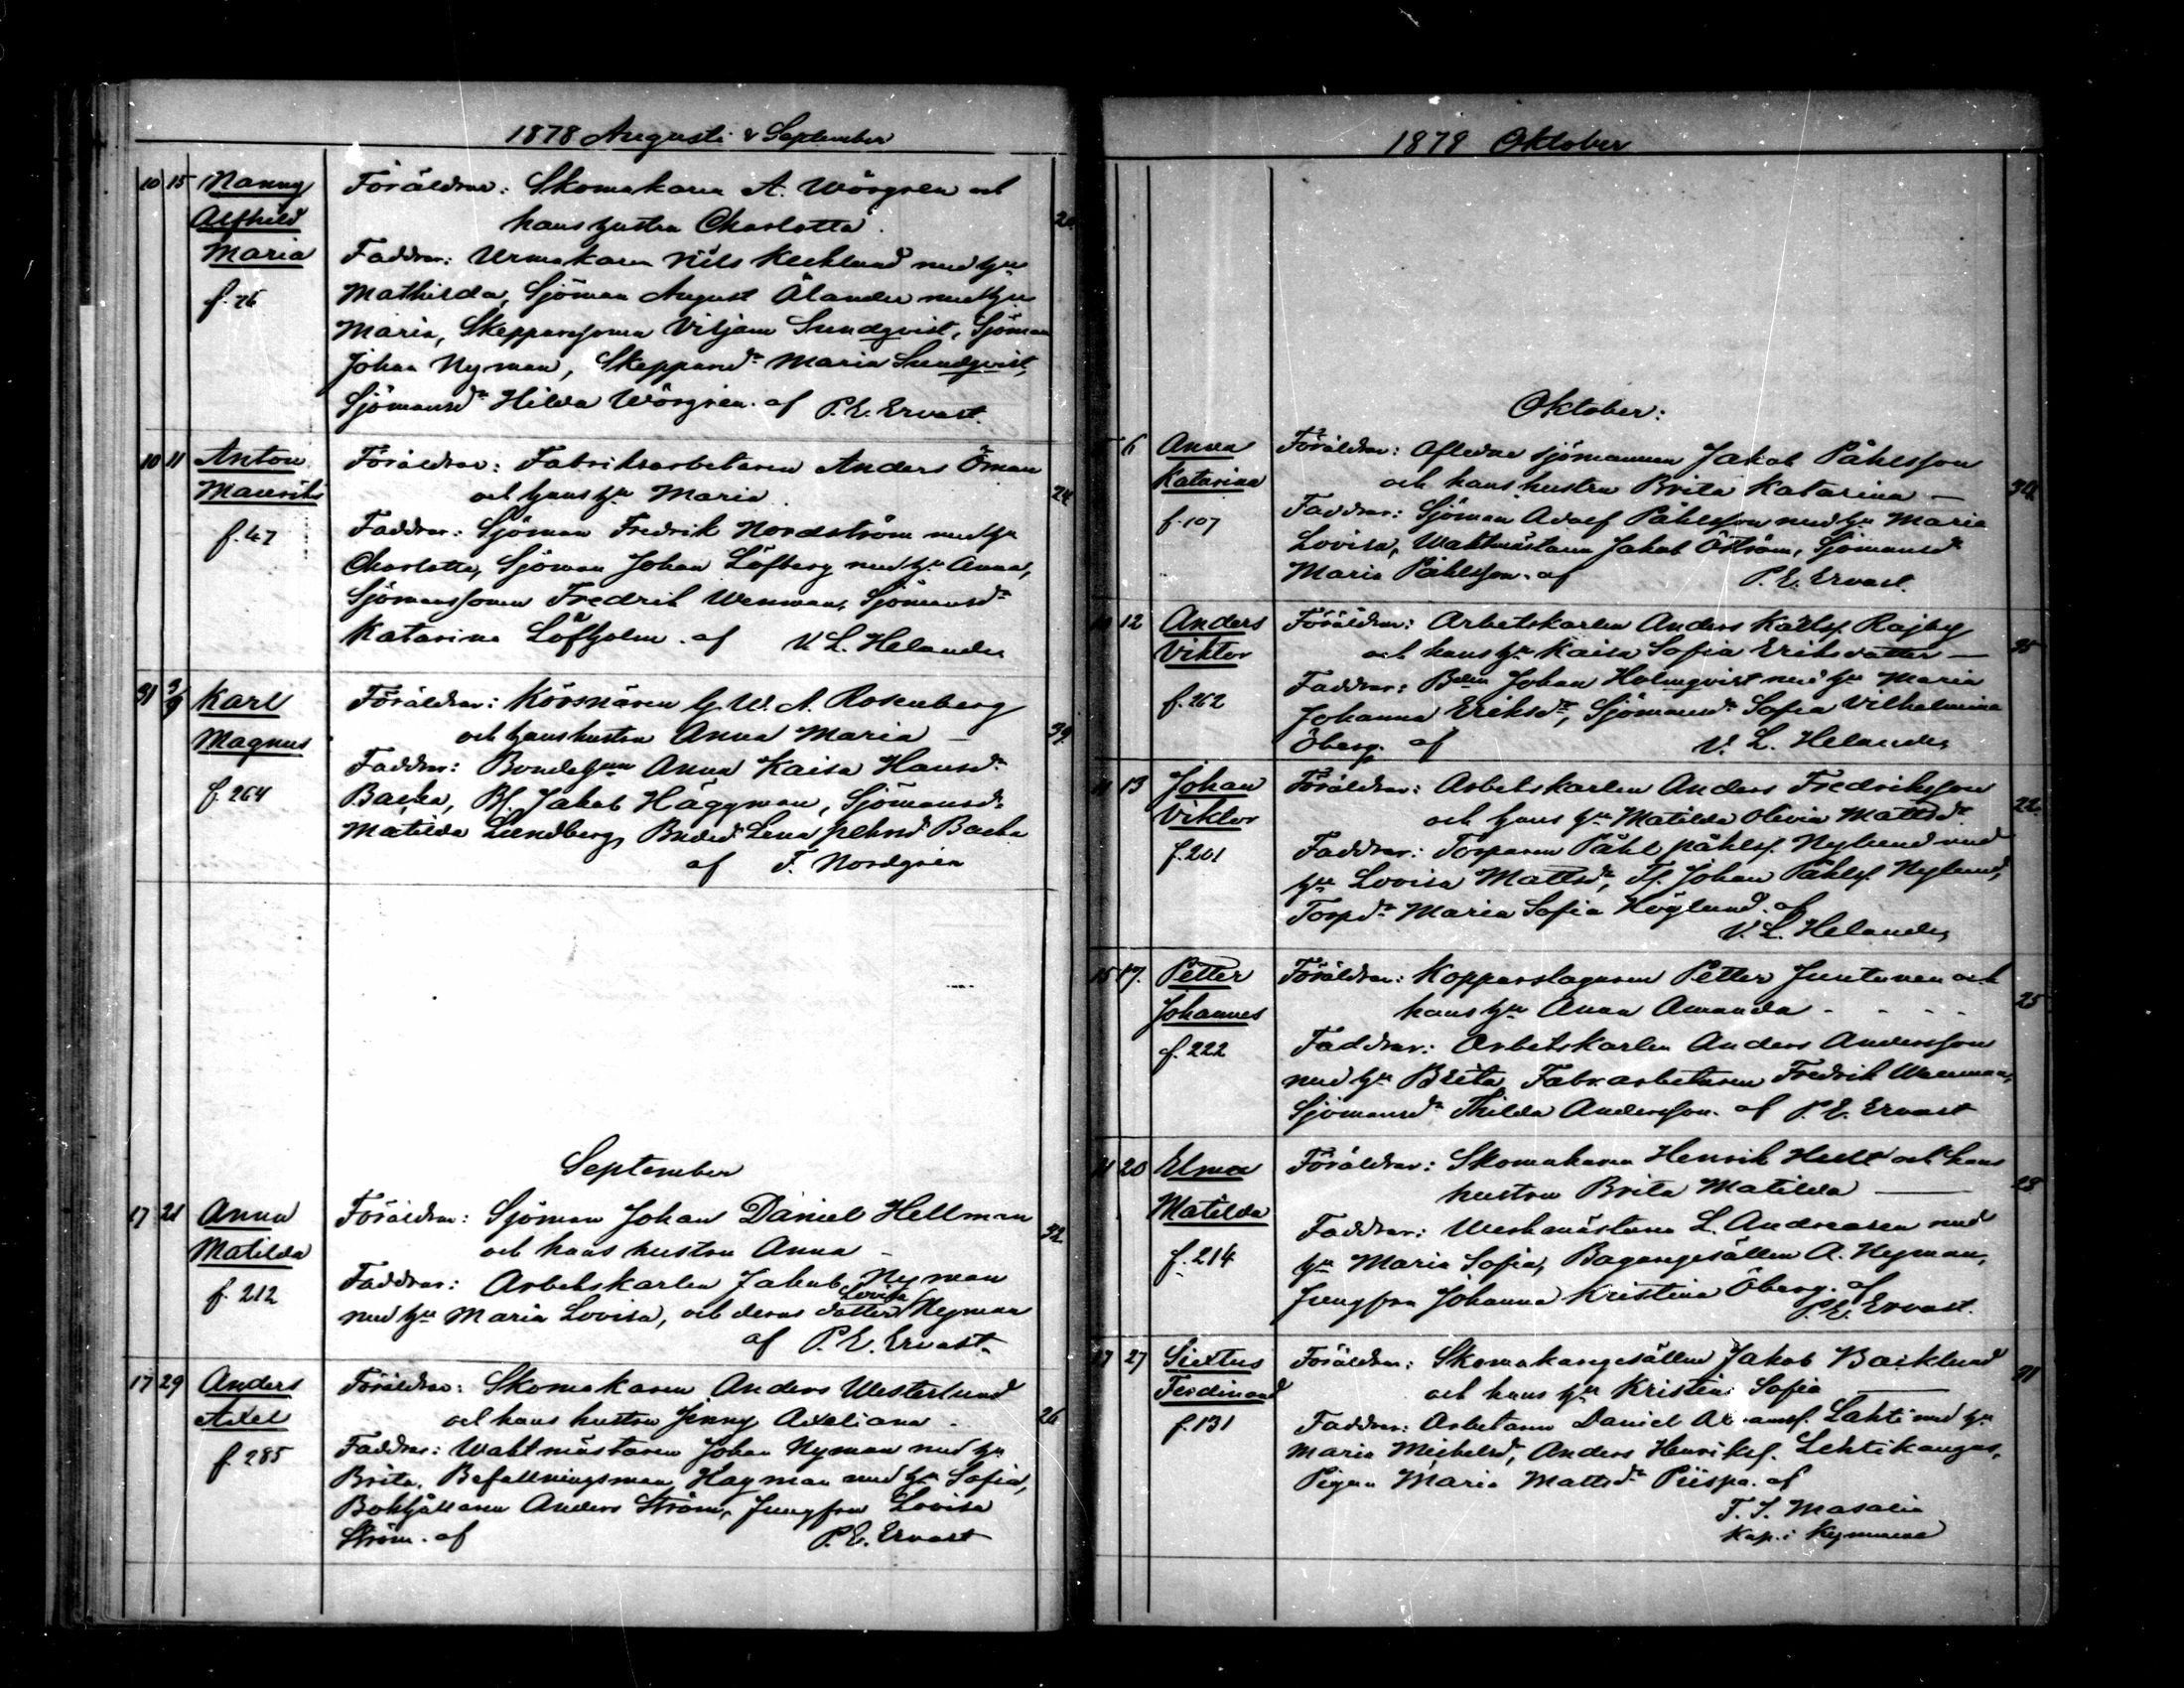 1878 Augusti & September
10 15 Nanny Föräldrar: Skomakaren A. Wörgren och
Alfhild hans hustru Charlotta. 20
Maria Faddrar: Urmakaren Nils Kecklund med hu
f. 26 Mathilda, Sjöman August Ålander med hu
Maria, Skepparesonen Viljam Sundqvist, Sjöman
Johan Nyman, Skeppared:r Maria Sundqvist,
Sjömansd:r Hilda Wörgren. af P. E. Ervast.
10 11 Anton Föräldrar: Fabriksarbetaren Anders Öman
Maurits och hans hu Maria. 24
f. 47 Faddrar: Sjöman Fredrik Nordström med hu
Charlotta, Sjöman Johan Löfberg med hu Anna,
Sjömanssonen Fredrik Wenman, Sjömansd:r
Katarina Löfholm. af V. L. Helander
31 3/9 Karl Föräldrar: Körsnären G. W. A. Rosenberg
Magnus och hans hustru Anna Maria – 39
f. 264 Faddrar: Bondehun Anna Kaisa Hansd:r
Backa, Bs. Jakob Häggman, Sjömansd:r
Matilda Lundberg, Lena Pehrsd Backa
af F. Nordgren
September
17 21 Anna Föräldrar: Sjöman Johan Daniel Hellman
Matilda och hans hustru Anna – 32
f. 212 Faddrar: Arbetskarlen Jakob Nyman
med hu Maria Lovisa, och deras dotter Lovisa Nyman
af P. E. Ervast.
17 29 Anders Föräldrar: Skomakaren Anders Westerlund
Axel och hans hustru Jenny Axeliana – 26
f. 285 Faddrar: Waktmästaren Johan Nyman med hu
Brita, Befallningsman Hagman med hu Sofia,
Bokhållaren Anders Ström, Jungfru Lovisa
Ström. af P. E. Ervast
1878 Oktober
Oktober:
6 Anna Föräldrar: Aflidne sjömannen Jakob Påhlsson
Katarina och hans hustru Brita Katarina – 34
f. 107 Faddrar: Sjöman Adolf Påhlsson med hu Maria
Lovisa, Waktmästaren Jakob Öström, Sjömansd:r
Maria Påhlsson. af P. E. Ervast.
12 Anders Föräldrar: Arbetskarlen Anders Karlss. Rajby
Viktor och hans hu Kaisa Sofia Eriksdotter – 35
f. 262 Faddrar: Johan Holmqvist med hu Maria
Johanna Eriksd:r, Sjömansd:r Sofia Vilhelmina
Öberg. af V. L. Helander
11 13 Johan Föräldrar: Arbetskarlen Anders Fredriksson
Viktor och hans hu Matilda Olivia Mattsd:r 22
f. 201 Faddrar: Torparen Påhl Påhlss. Nylund med
hu Lovisa Mattsd:r, Ts. Johan Påhlss. Nylund,
Torpd:r Maria Sofia Höglund. af
V. L. Helander
15 17. Petter Föräldrar: Kopparslagaren Petter Juntunen och
Johannes hans hu Anna Amanda - - - - 25
f. 222 Faddrar: Arbetskarlen Anders Andersson
med hu Brita, Fabr.arbetaren Fredrik Wenman,
Sjömansd:r Thilda Andersson. af P. E. Ervast
20 Elma Föräldrar: Skomakaren Henrik Hult och hans
Matilda hustru Brita Matilda — 28
f. 214 Faddrar: Werkmästaren L. Andreasen med
hu Maria Sofia, Bagaregesällen A. Nyman,
Jungfru Johanna Kristina Öberg. af
P. E. Ervast.
17 27 Sixtus Föräldrar: Skomakaregesällen Jakob Backlund
Ferdinand och hans hu Kristina Sofia — 31
f. 131 Faddrar: Arbetaren Daniel Abramss. Lahti med hu
Maria Michelsd:r, Anders Henrikss. Lehtikangas,
Pigan Maria Mattsd:r Piispa. af
F. I. Masalin
Kap. i